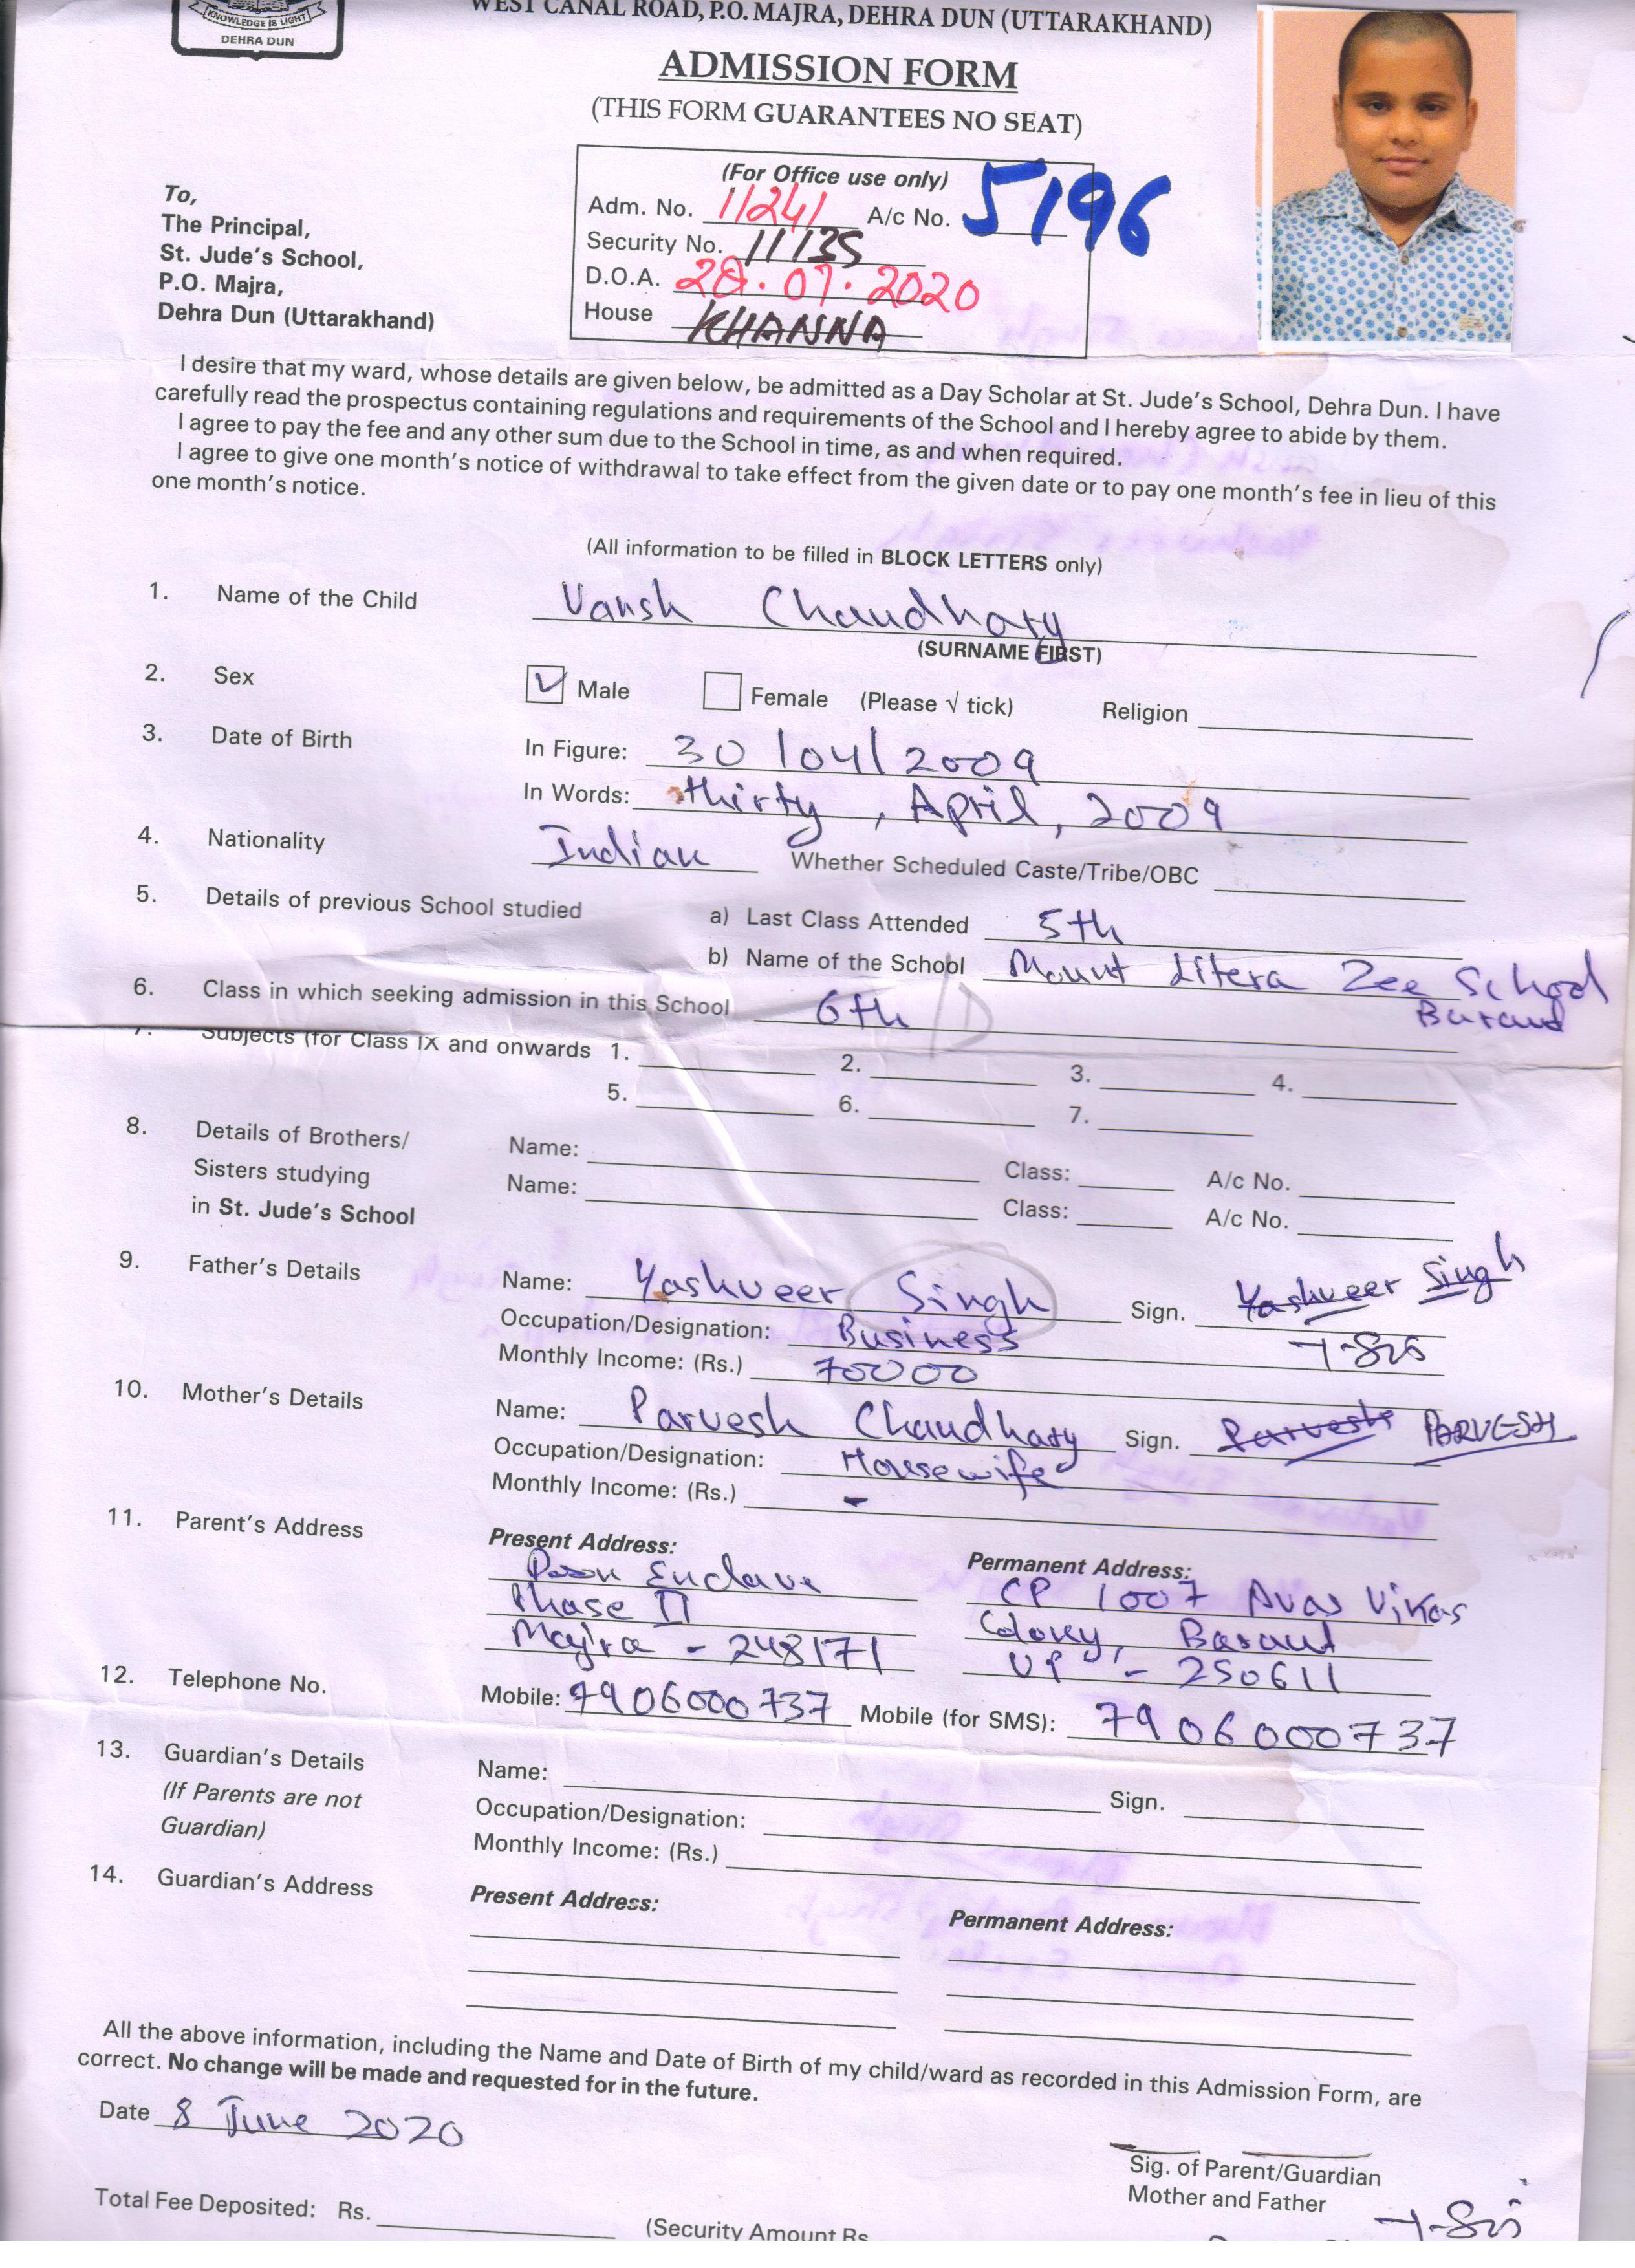 KNOWLEDGE IS LIGHT
DEHRA DUN
WEST CANAL ROAD, P.O. MAJRA, DEHRA DUN (UTTARAKHAND)
ADMISSION FORM
(THIS FORM GUARANTEES NO SEAT)
(For Office use only)
Adm. No. 11241 A/c No. 5196
Security No. 11135
D.O.A. 28.07.2020
House KHANNA
To,
The Principal,
St. Jude's School,
P.O. Majra,
Dehra Dun (Uttarakhand)
I desire that my ward, whose details are given below, be admitted as a Day Scholar at St. Jude's School, Dehra Dun. I have
carefully read the prospectus containing regulations and requirements of the School and I hereby agree to abide by them.
I agree to pay the fee and any other sum due to the School in time, as and when required.
I agree to give one month's notice of withdrawal to take effect from the given date or to pay one month's fee in lieu of this
one month's notice.
(All information to be filled in BLOCK LETTERS only)
1. Name of the Child Vansh Chaudhary
(SURNAME FIRST)
2. Sex Male Female (Please √ tick) Religion
3. Date of Birth In Figure: 30/04/2009
In Words: thirty, April, 2009
4. Nationality Indian Whether Scheduled Caste/Tribe/OBC
5. Details of previous School studied a) Last Class Attended 5th
b) Name of the School Mount Litera Zee School
Baraut
6. Class in which seeking admission in this School 6th/D
7. Subjects (for Class IX and onwards 1. 2. 3. 4.
5. 6. 7.
8. Details of Brothers/ Name: Class: A/c No.
Sisters studying Name: Class: A/c No.
in St. Jude's School
9. Father's Details Name: Yashveer Singh Sign. Yashveer Singh
Occupation/Designation: Business
Monthly Income: (Rs.) 70000
10. Mother's Details Name: Parvesh Chaudhary Sign. Parvesh PARVESH
Occupation/Designation: Housewife
Monthly Income: (Rs.) -
11. Parent's Address Present Address: Permanent Address:
Enclave CP 1007 Avas Vikas
Phase II Colony, Baraut
Majra - 248171 UP - 250611
12. Telephone No. Mobile: 7906000737 Mobile (for SMS): 7906000737
13. Guardian's Details Name: Sign.
(If Parents are not Occupation/Designation:
Guardian) Monthly Income: (Rs.)
14. Guardian's Address Present Address: Permanent Address:
All the above information, including the Name and Date of Birth of my child/ward as recorded in this Admission Form, are
correct. No change will be made and requested for in the future.
Date 8 June 2020
Sig. of Parent/Guardian
Mother and Father
Total Fee Deposited: Rs. (Security Amount Rs